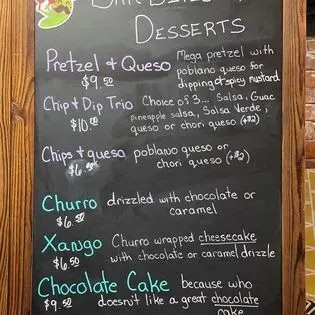 Desserts
Pretzel & Queso Mega pretzel with
$9.50 poblano queso for
dipping & spicy mustard
Chip & Dip Trio Choice of 3... Salsa, Guac
$10.00 Pineapple salsa, Salsa Verde,
queso or chori queso (+$2)
Chips & queso poblano queso or
$6.50 chori queso (+$2)
Churro drizzled with chocolate or
$6.50 caramel
Xango Churro wrapped cheesecake
$6.50 with chocolate or caramel drizzle
Chocolate Cake because who
$9.50 doesn't like a great chocolate
cake